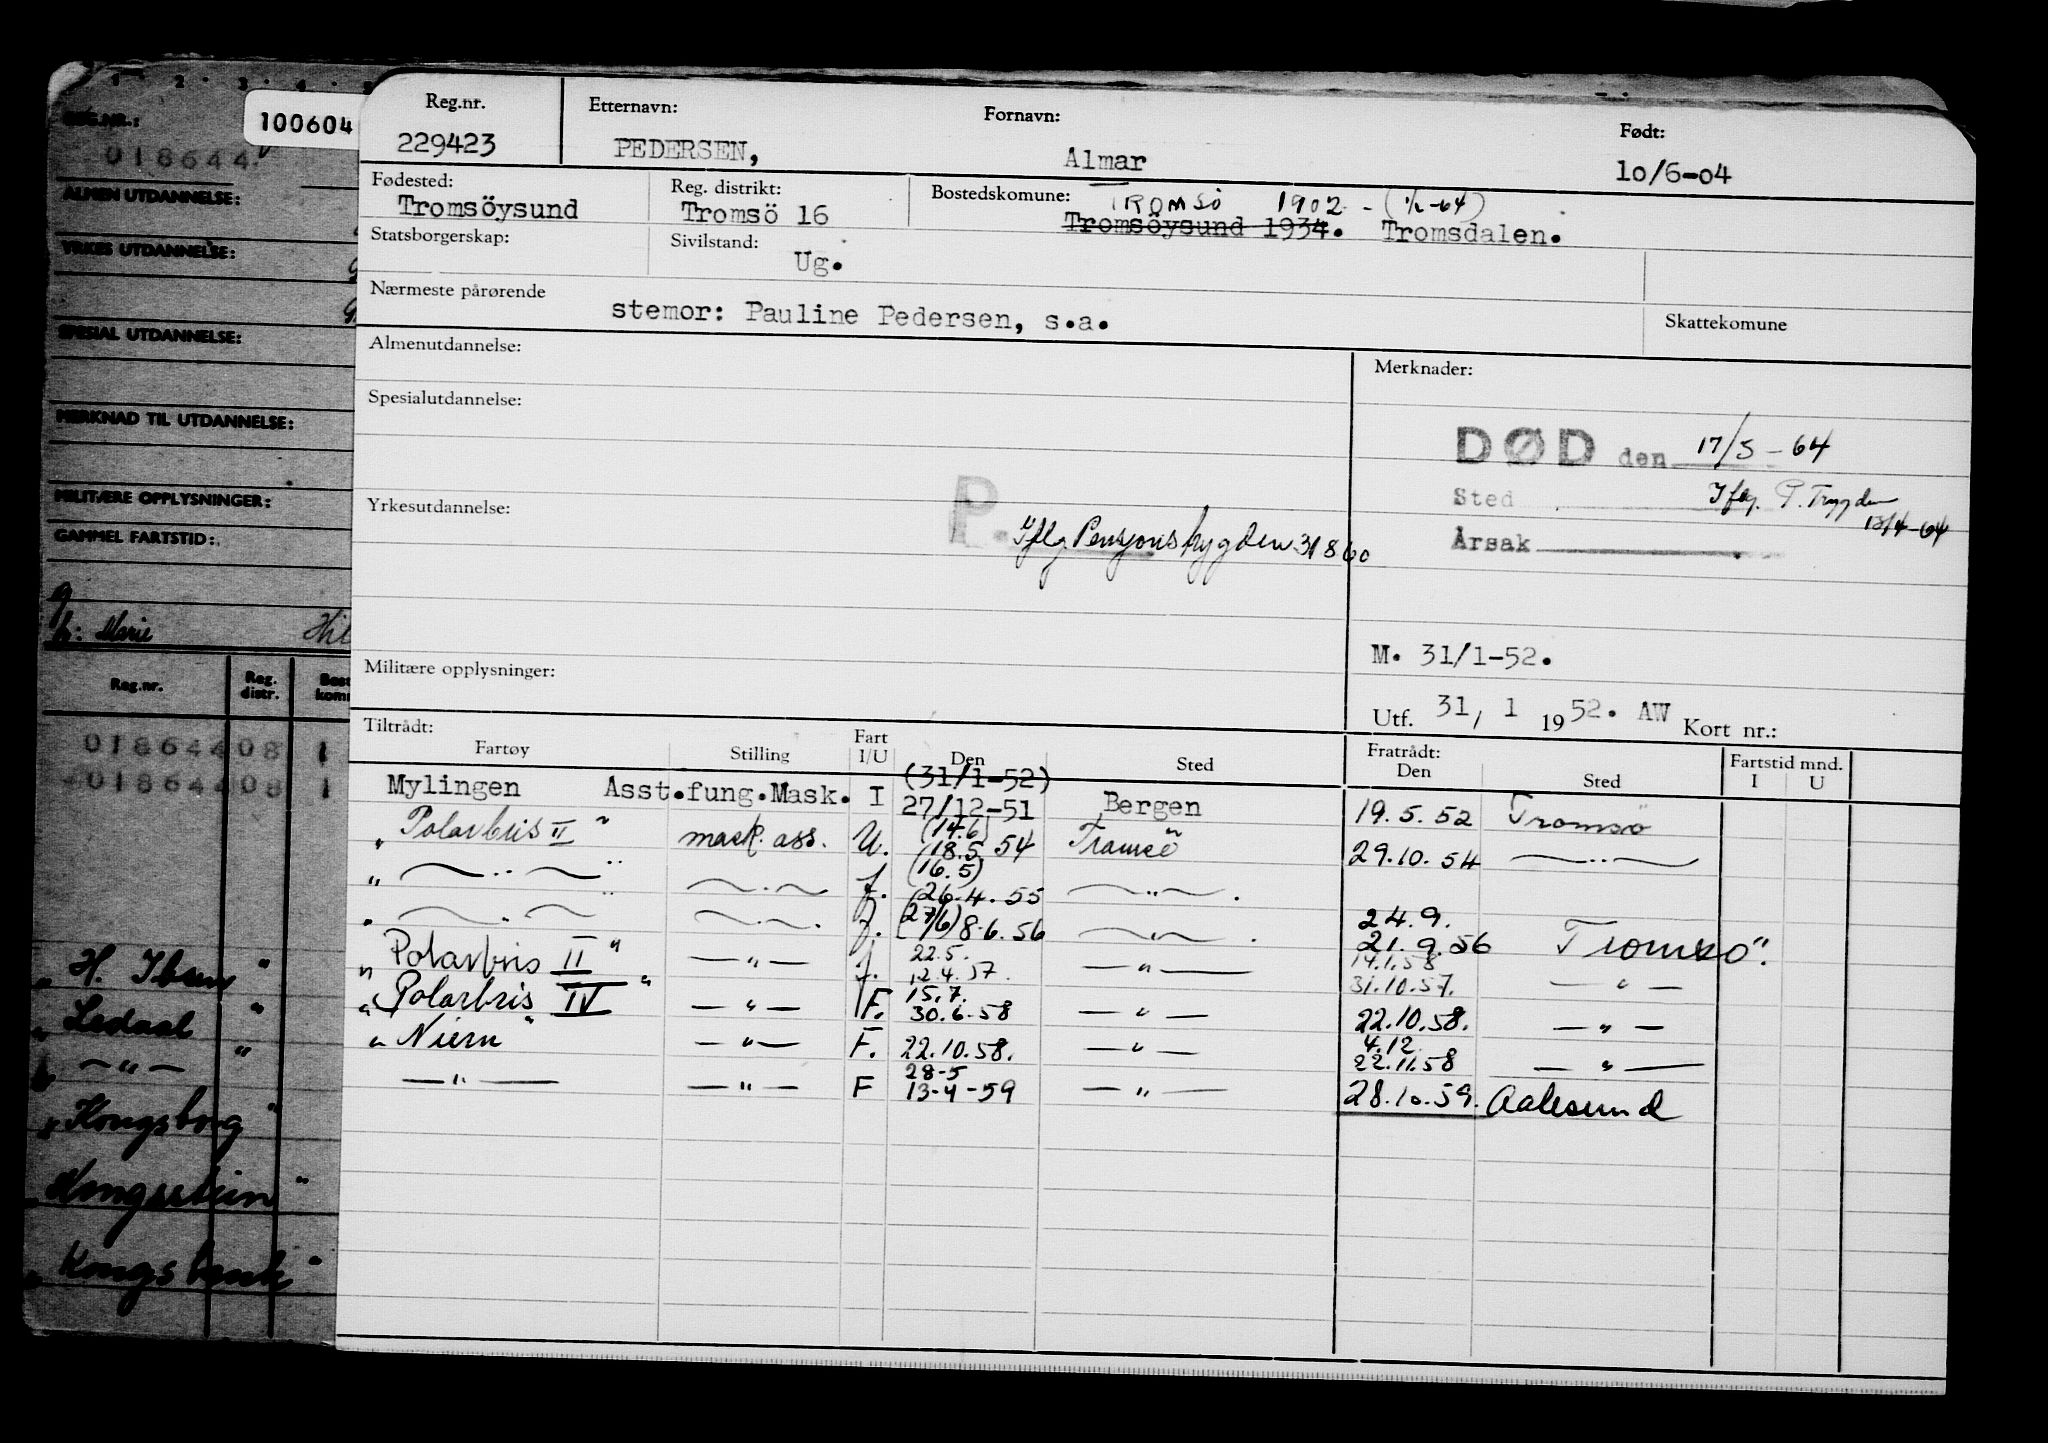 1 2 3 4 5
REG.NR.:
100604
018644
ALMEN UTDANNELSE:
YRKES UTDANNELSE:
SPESIAL UTDANNELSE:
MERKNAD TIL UTDANNELSE:
MILITÆRE OPPLYSNINGER:
GAMMEL FARTSTID:
Marie Hil
Reg.nr. Reg. distr.
01864408 1
01864408 1
" H. Ibsen "
" Ledaal "
— " — "
" Kongsborg "
" Kongsstein "
" Kongsbank "
Reg.nr. Etternavn: Fornavn: Født:
229423 PEDERSEN, Almar 10/6-04
Fødested: Reg. distrikt: Bostedskomune: TROMSÖ 1902 - (1/2-64)
Tromsöysund Tromsö 16 Tromsöysund 1934. Tromsdalen.
Statsborgerskap: Sivilstand:
Ug.
Nærmeste pårørende
stemor: Pauline Pedersen, s.a.
Skattekomune
Almenutdannelse: Merknader:
Spesialutdannelse:
DØD den 17/3-64
Sted Iflg. P. Trygden
13/4-64
Årsak
Yrkesutdannelse:
P.
Iflg Pensjonstrygden 31 8 60
M. 31/1-52.
Militære opplysninger:
Utf. 31/ 1 1952. AW Kort nr.:
Tiltrådt: Fratrådt: Fartstid mnd.
Fartøy Stilling Fart I/U Den Sted Den Sted I U
(31/1-52)
Mylingen Asst.fung.Mask. I 27/12-51 Bergen 19.5.52 Tromsö
(14.6)
" Polarbris II " mask. ass. U. (18.5.54 Tromsö 29.10.54 — " —
(16.5)
" — " — " — " — f. (26.4.55 — " — .
24.9.
" — " — — " — . f. (27/6) 8.6.56 — " — . 21.9.56 Tromsö.
22.5. 14.1.58
" Polarbris II " — " — f. 12.4.57. — " — 31.10.57. — " —
15.7.
" Polarbris IV " — " — F. 30.6.58 — " — 22.10.58. — " —
4.12.
" Niern " — " — F. 22.10.58. — " — 22.11.58 — " —
28-5
— " — — " — F 13-4-59 — " — 28.10.59. Aalesund